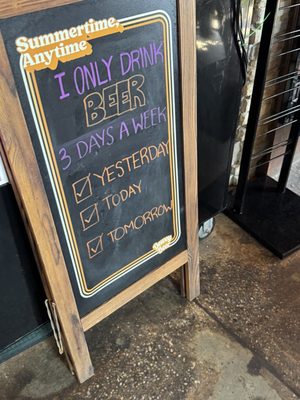 Summertime,
Anytime
I ONLY DRINK
BEER
3 DAYS A WEEK
☑ YESTERDAY
☑ TODAY
☑ TOMORROW